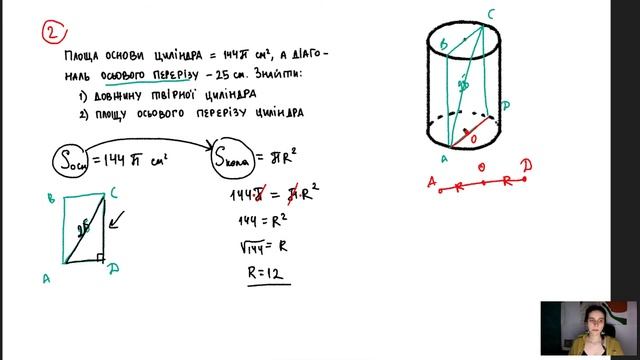 2
ПЛОЩА ОСНОВИ ЦИЛІНДРА = 144π см², А ДІАГО-
НАЛЬ ОСЬОВОГО ПЕРЕРІЗУ – 25 см. ЗНАЙТИ:
1) ДОВЖИНУ ТВІРНОЇ ЦИЛІНДРА
2) ПЛОЩУ ОСЬОВОГО ПЕРЕРІЗУ ЦИЛІНДРА
Sосн = 144π см²
Sкола = πR²
144·π = π·R²
144 = R²
√144 = R
R = 12
B C
25
A D
C
B
25
D
O
A
A O D
R R